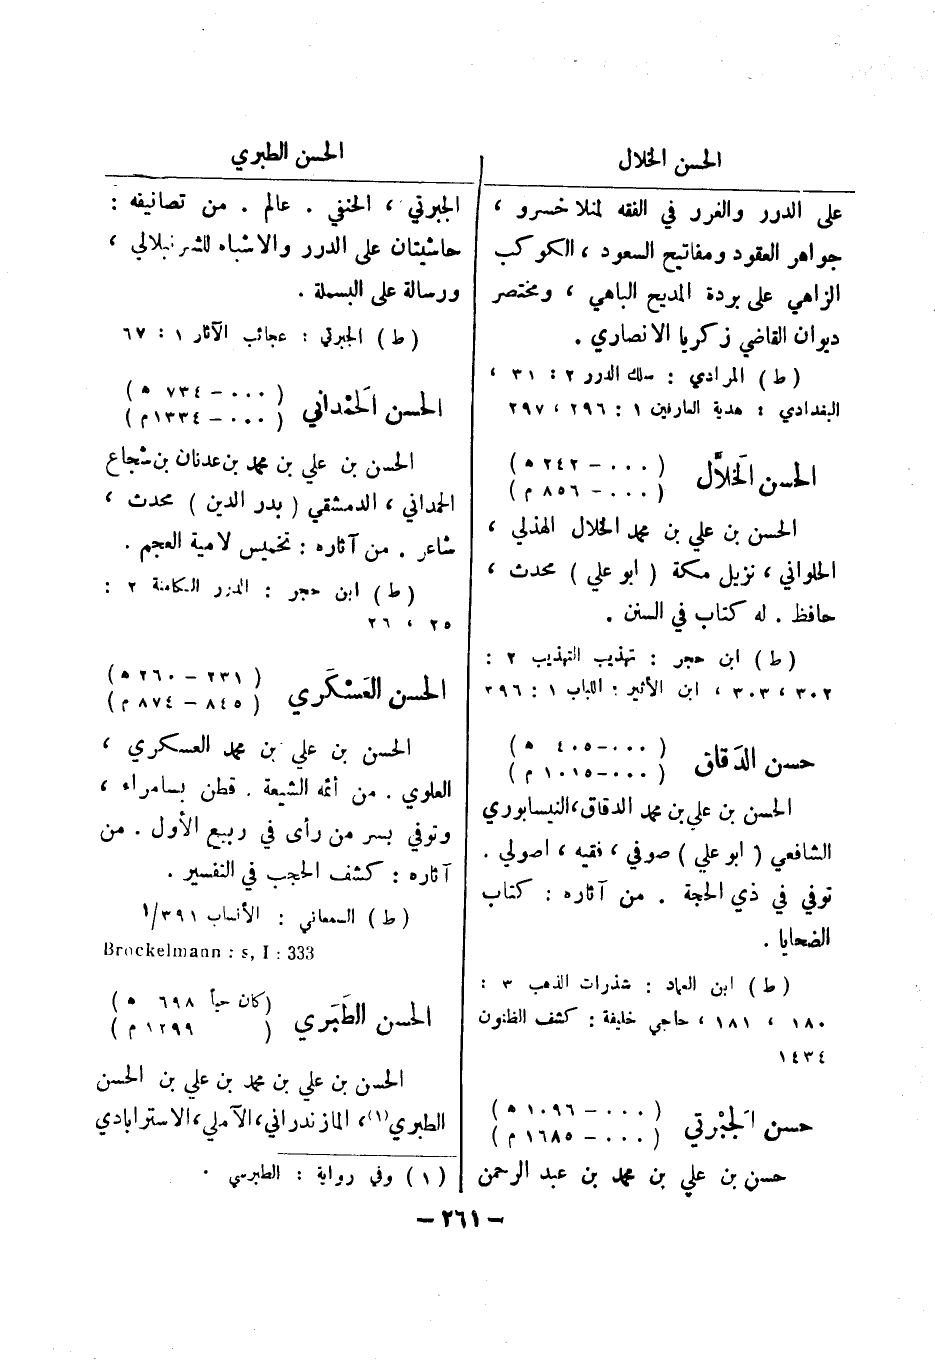 الحسن الخلال
على الدرر والغرر في الفقه لمنلا خسرو ،
جواهر العقود ومفاتيح السعود ، الكوكب
الزاهي على بردة المديح الباهي ، ومختصر
ديوان القاضي زكريا الانصاري .
( ط ) المرادي : سلك الدرر ٢ : ٣١ ،
البغدادي : هدية العارفين ١ : ٢٩٦ ، ٢٩٧
الحسن الخَلاَّل ( ٠٠٠ – ٢٤٢ ه )
( ٠٠٠ – ٨٥٦ م )
الحسن بن علي بن محمد الخلال الهذلي ،
الحلواني ، نزيل مكة ( ابو علي ) محدث ،
حافظ . له كتاب في السنن .
( ط ) ابن حجر : تهذيب التهذيب ٢ :
٣٠٢ ، ٣٠٣ ، ابن الأثير : اللباب ١ : ٣٩٦
حسن الدَقاق ( ٠٠٠ – ٤٠٥ ه )
( ٠٠٠ – ١٠١٥ م )
الحسن بن علي بن محمد الدقاق ، النيسابوري
الشافعي ( ابو علي ) صوفي ، فقيه ، اصولي .
توفي في ذي الحجة . من آثاره : كتاب
الضحايا .
( ط ) ابن العماد : شذرات الذهب ٣ :
١٨٠ ، ١٨١ ، حاجي خليفة : كشف الظنون
١٤٣٤
حسن الجَبْرتي ( ٠٠٠ – ١٠٩٦ ه )
( ٠٠٠ – ١٦٨٥ م )
حسن بن علي بن محمد بن عبد الرحمن
الحسن الطبري
الجبرتي ، الحنفي . عالم . من تصانيفه :
حاشيتان على الدرر والاشباه للشرنبلالي ،
ورسالة على البسملة .
( ط ) الجبرتي : عجائب الآثار ١ : ٦٧
الحسن الحَمْداني ( ٠٠٠ – ٧٣٤ ه )
( ٠٠٠ – ١٣٣٤ م )
الحسن بن علي بن محمد بن عدنان بن شجاع
الحمداني ، الدمشقي ( بدر الدين ) محدث ،
شاعر . من آثاره : تخميس لامية العجم .
( ط ) ابن حجر : الدرر الكامنة ٢ :
٢٥ ، ٢٦
الحسن العَسْكَري ( ٢٣١ – ٢٦٠ ه )
( ٨٤٥ – ٨٧٤ م )
الحسن بن علي بن محمد العسكري ،
العلوي . من أئمة الشيعة . قطن بسامراء ،
وتوفي بسر من رأى في ربيع الأول . من
آثاره : كشف الحجب في التفسير .
( ط ) السمعاني : الأنساب ٣٩١/١
Brockelmann : s, I : 333
الحسن الطَبَري ( كان حياً ٦٩٨ ه )
( ١٢٩٩ م )
الحسن بن علي بن محمد بن علي بن الحسن
الطبري (١)، المازندراني ، الآملي ، الاسترابادي
( ١ ) وفي رواية : الطبرسي .
– ٢٦١ –